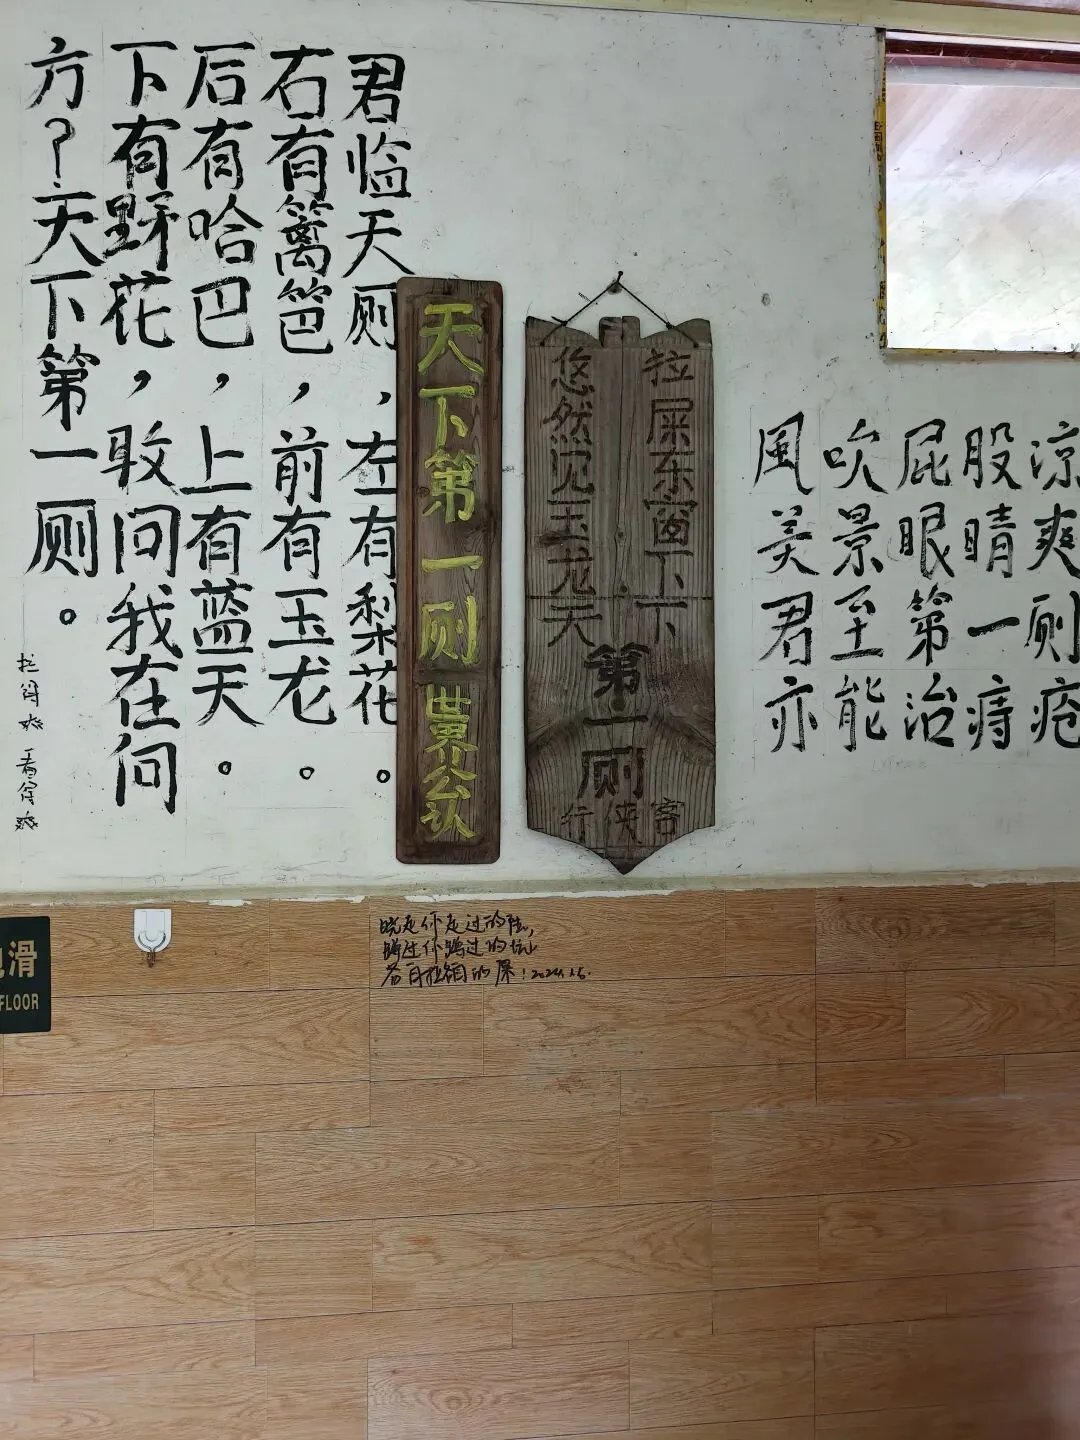 風吹屁股凉
美景眼睛爽
君至第一厕
亦能治痔疮
拉屎东窗下
悠然见玉龙
天下
第一厕
行侠客
天下第一厕 世界公认
君临天厕，左有梨花。
右有篱笆，前有玉龙。
后有哈巴，上有蓝天。
下有野花，敢问我在何
方？天下第一厕。
拉得爽 看得爽
走你走过的路，
蹲过你蹲过的坑
的屎！
滑
FLOOR